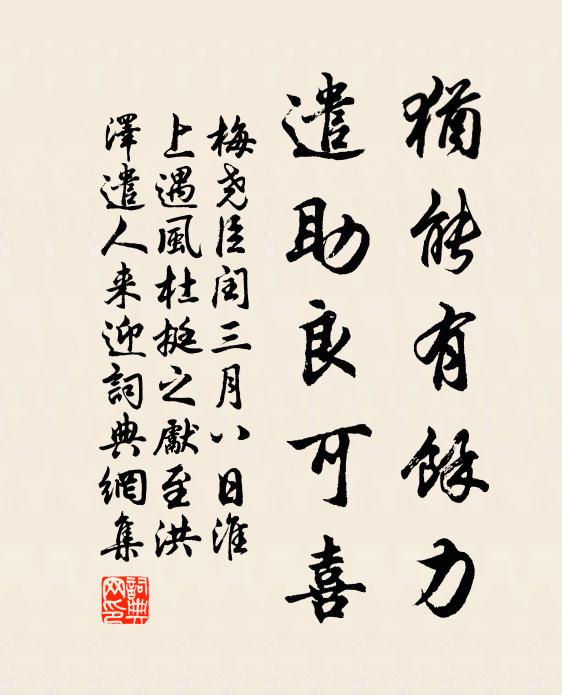 猶能有餘力
遣助良可喜
梅尧臣闰三月八日淮
上遇風杜挺之獻至洪
澤遣人来迎詞典網集
詞典网印